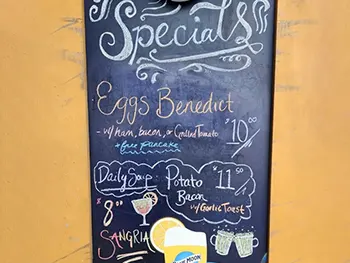 Specials
Eggs Benedict
- w/Ham, bacon, or Grilled Tomato $10.00
+ free pancake
Daily Soup: Potato $11.50
Bacon
w/Garlic Toast
$8.00
SANGRIA
MOON